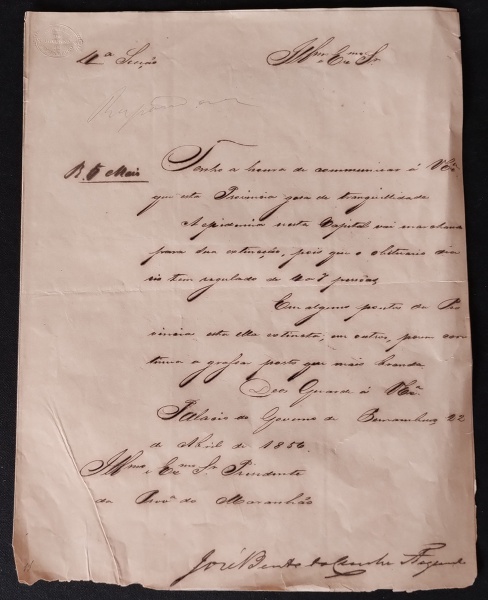 4ª Secção
Illmo e Exmo Sr.
R. 6 Maio
Tenho a honra de communicar á V Exª
que esta Provincia gosa de tranquillidade.
A epidemia nesta Capital vai marchando
para sua extincção, pois que o obituario dia
rio tem regulado de 4 a 7 pessôas,
Em alguns pontos da Pro
vincia está ella extincta, em outros, porem con
tinua a grassar posto que mais branda.
Deos Guarde á V Exª
Palacio do Governo de Pernambuco 22
de Abril de 1856.
Illmo e Exmo Sr. Presidente
da Provª do Maranhão
José Bento da Cunha Figueiredo